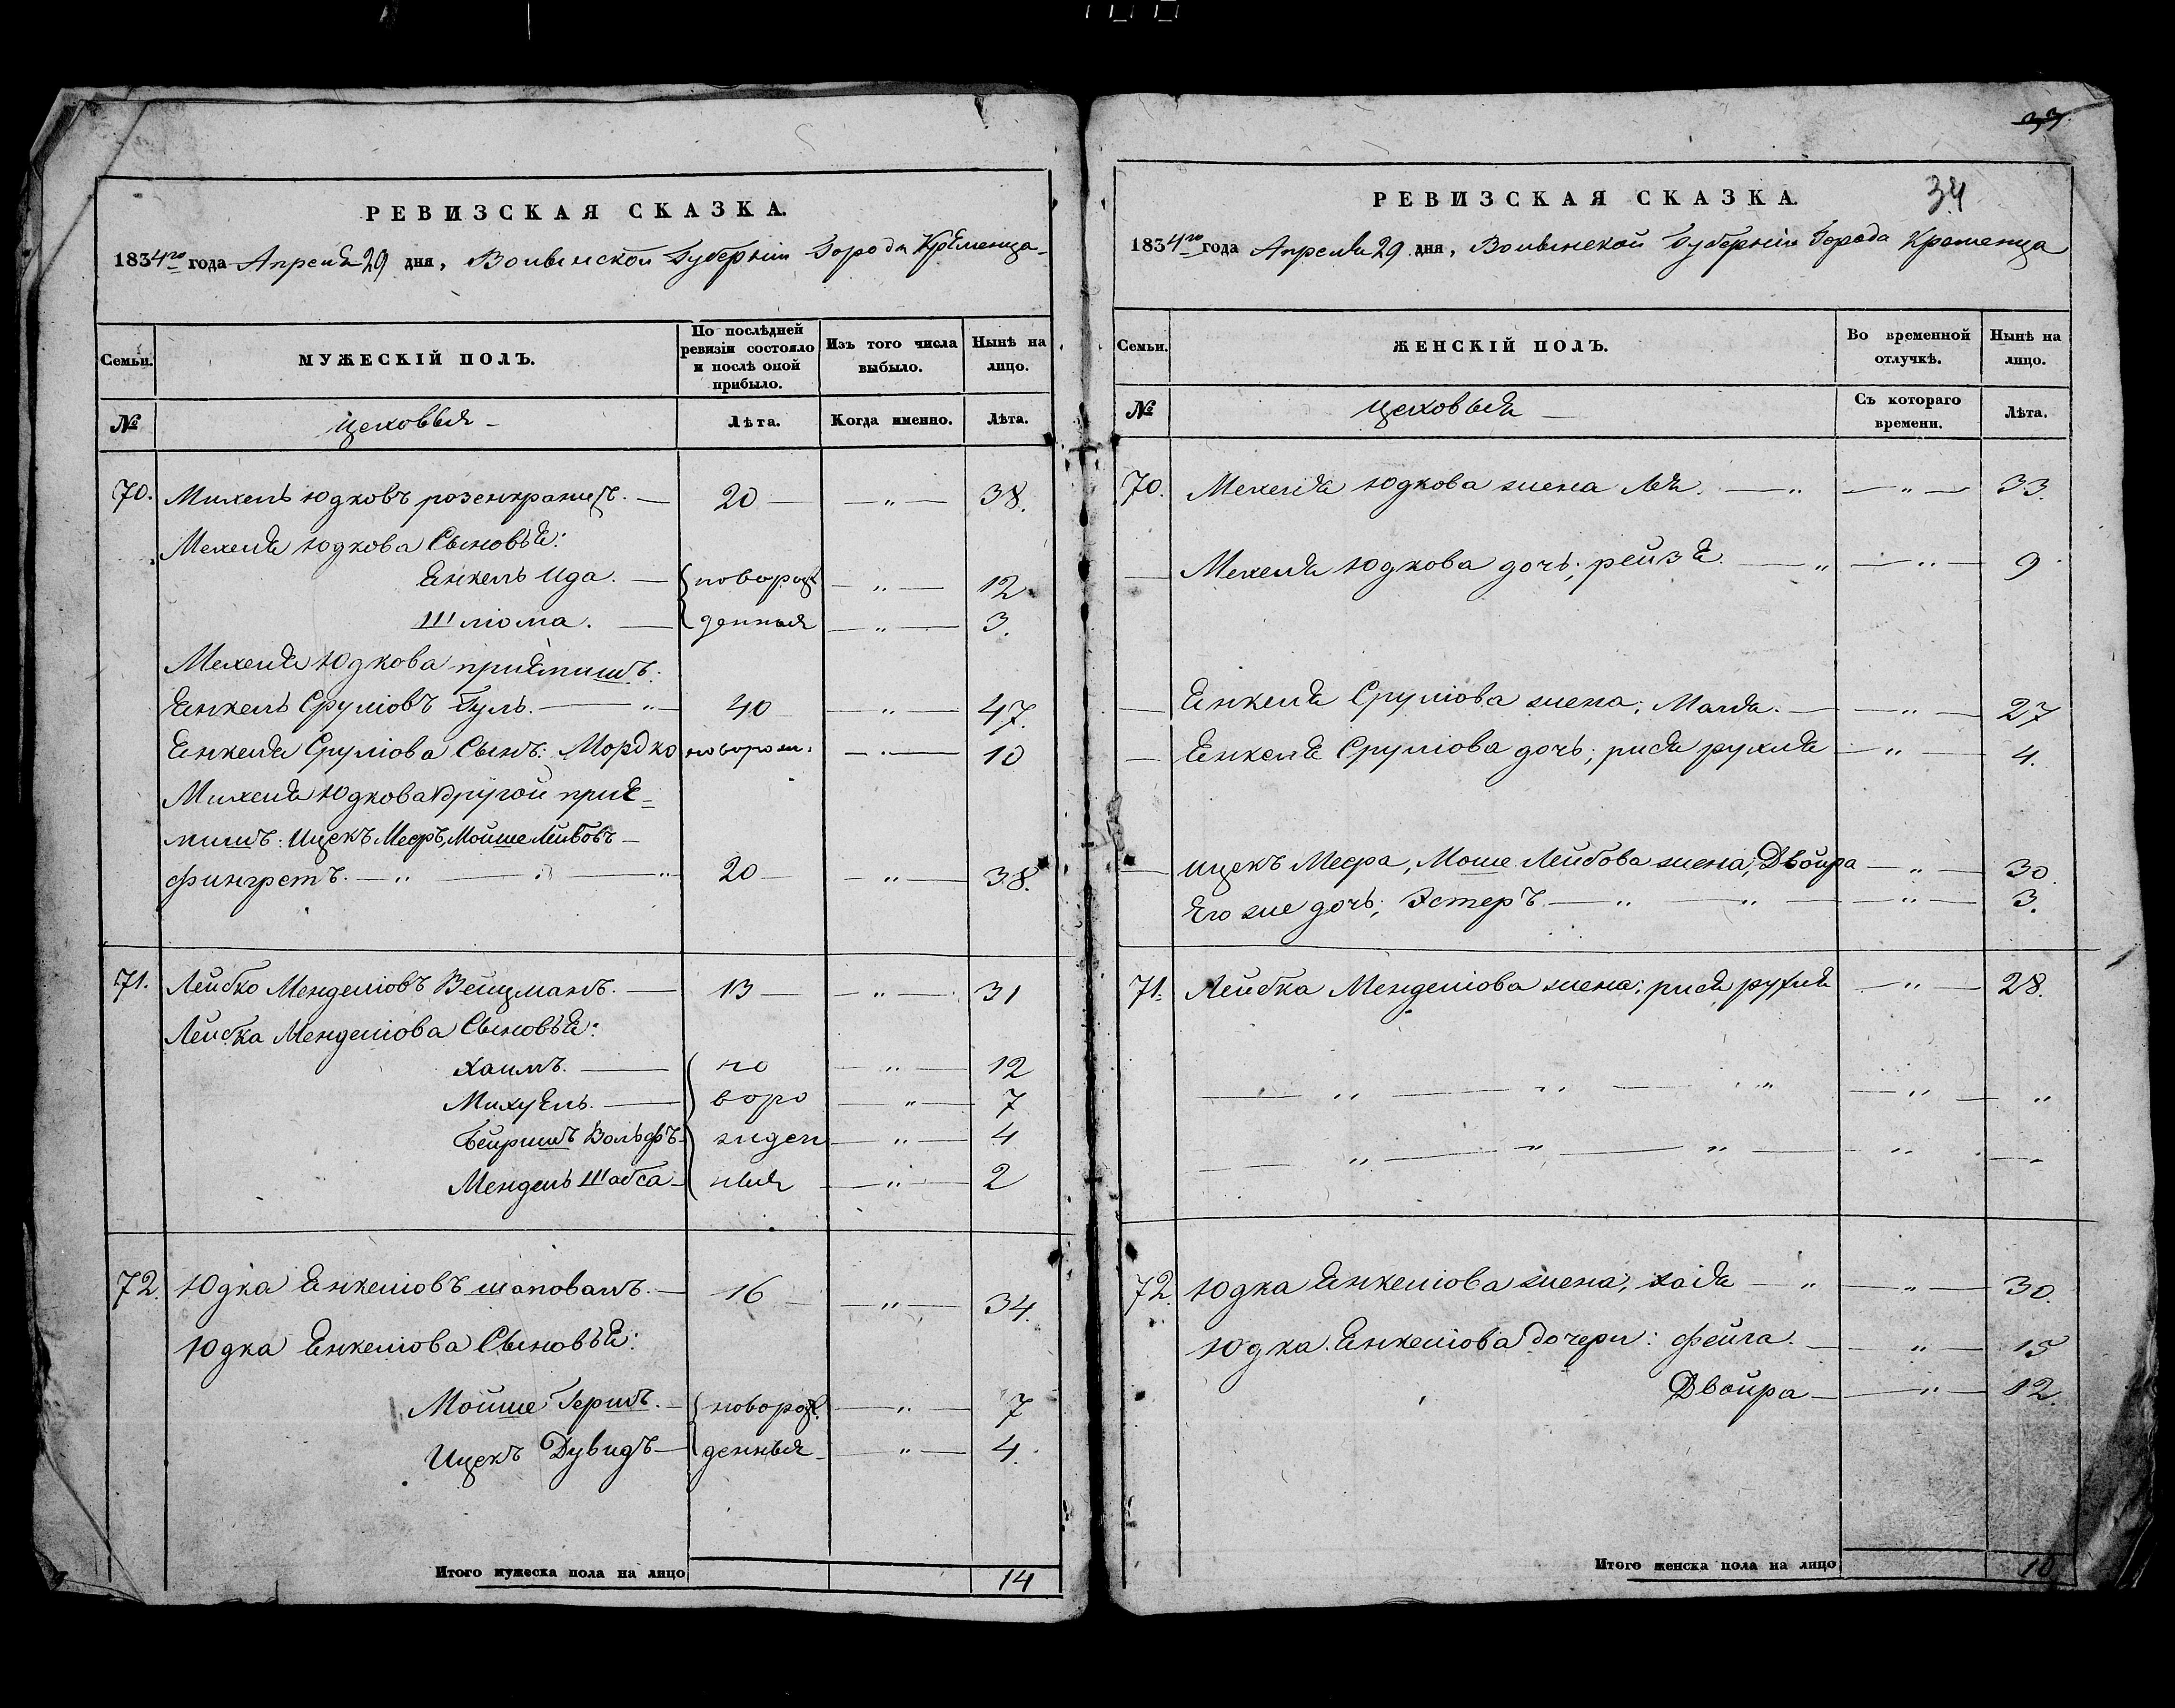 РЕВИЗСКАЯ СКАЗКА.
1834го года Апреля 29 дня, Волынской Губернiи Города Кременца
Семьи.
МУЖЕСКIЙ ПОЛЪ.
По послѣдней ревизiи состояло и послѣ оной прибыло.
Изъ того числа выбыло.
Нынѣ на лицо.
№
цеховыя
Лѣта.
Когда именно.
Лѣта.
70. Михель Юдковъ розенкранцъ. — 20 — „ — 38.
Мехеля Юдкова Сыновья:
Енкель Ида. — новорож — „ — 12
Шлiома. — денныя — „ — 3.
Мехеля Юдкова прiемишъ:
Енкель Срулiовъ Гуль. — „ — 40 — „ — 47.
Енкеля Срулiова Сынъ: Мордко новорож. — „ — 10
Михеля Юдкова другой прiе-
мишъ: Ицекъ Меэръ, Мойше Лейбовъ —
фингретъ. — „ — „ — „ 20 — „ — 38.
71. Лейбко Менделiовъ Вейцманъ. — 13 — „ — 31
Лейбка Менделiова Сыновья:
Хаимъ. — но — „ — 12
Михуель. — воро — „ — 7
Бейришъ Вольфъ — жден — „ — 4
Мендель Шабса — ныя — „ — 2
72. Юдка Енкелiовъ шаповалъ. — 16 — „ — 34.
Юдка Енкелiова Сыновья:
Мойше Гершъ. — новорож. — „ — 7
Ицекъ Дувидъ — денныя — „ — 4.
Итого мужеска пола на лицо 14
33.
34
РЕВИЗСКАЯ СКАЗКА.
1834го года Апреля 29 дня, Волынской Губернiи Города Кременца
Семьи.
ЖЕНСКIЙ ПОЛЪ.
Во временной отлучкѣ.
Нынѣ на лицо.
№
цеховыя
Съ котораго времени.
Лѣта.
70. Мехеля Юдкова жена Лея. — „ — „ — 33.
— Мехеля Юдкова дочь; рейзя — „ — „ — 9
— Енкеля Срулiова жена; Маля. — „ — 27
— Енкеля Срулiова дочь; рися рухля — „ — 4.
— Ицекъ Меэра, Моше Лейбова жена; Двойра — „ — 30.
Его же дочь; Эстеръ — „ — „ — „ — 3.
71. Лейбка Менделiова жена; рися рухля — „ — 28.
— „ — „ — „ — „ — „
— „ — „ — „ — „ — „
72. Юдка Енкелiова жена; хая — „ — „ — 30.
Юдка Енкелiова дочери: Фейга. — „ — 15
Двойра — „ — 12.
Итого женска пола на лицо 10